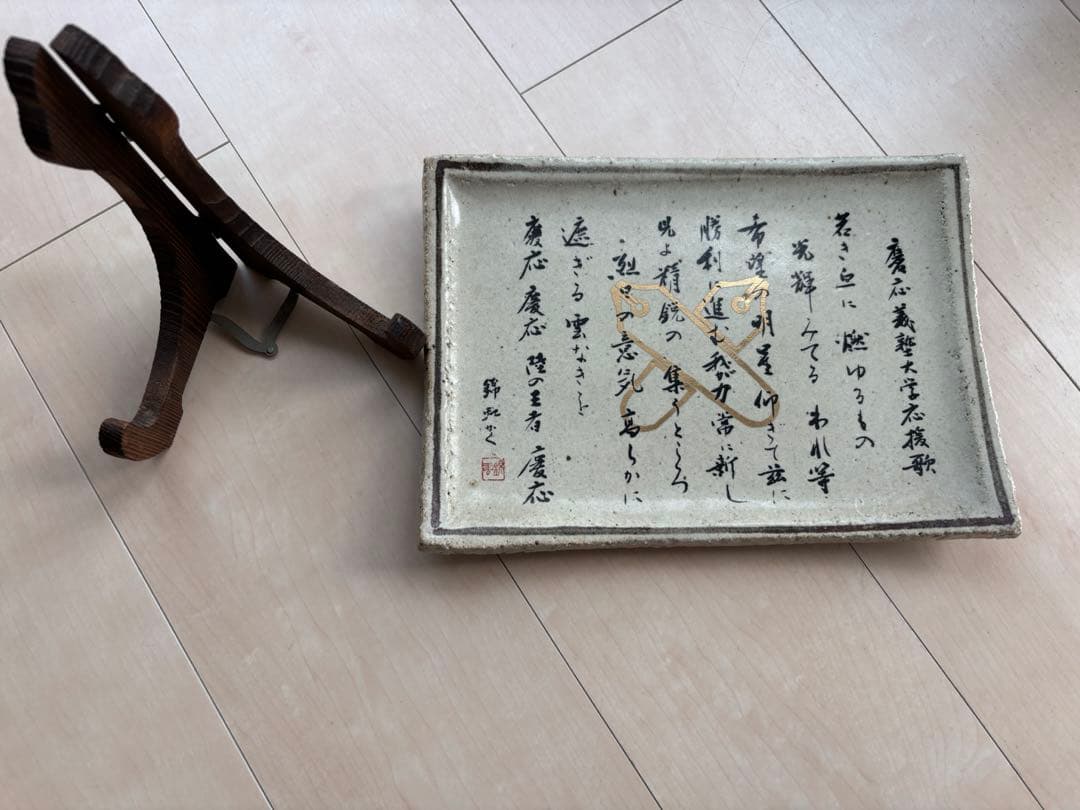 慶応義塾大学応援歌
若き血に 燃ゆるもの
光輝みてる われ等
希望の明星 仰ぎて茲に
勝利に進む 我が力 常に新し
見よ精鋭の 集うところ
烈日の意気 高らかに
遮ぎる雲なきを
慶応 慶応 陸の王者 慶応